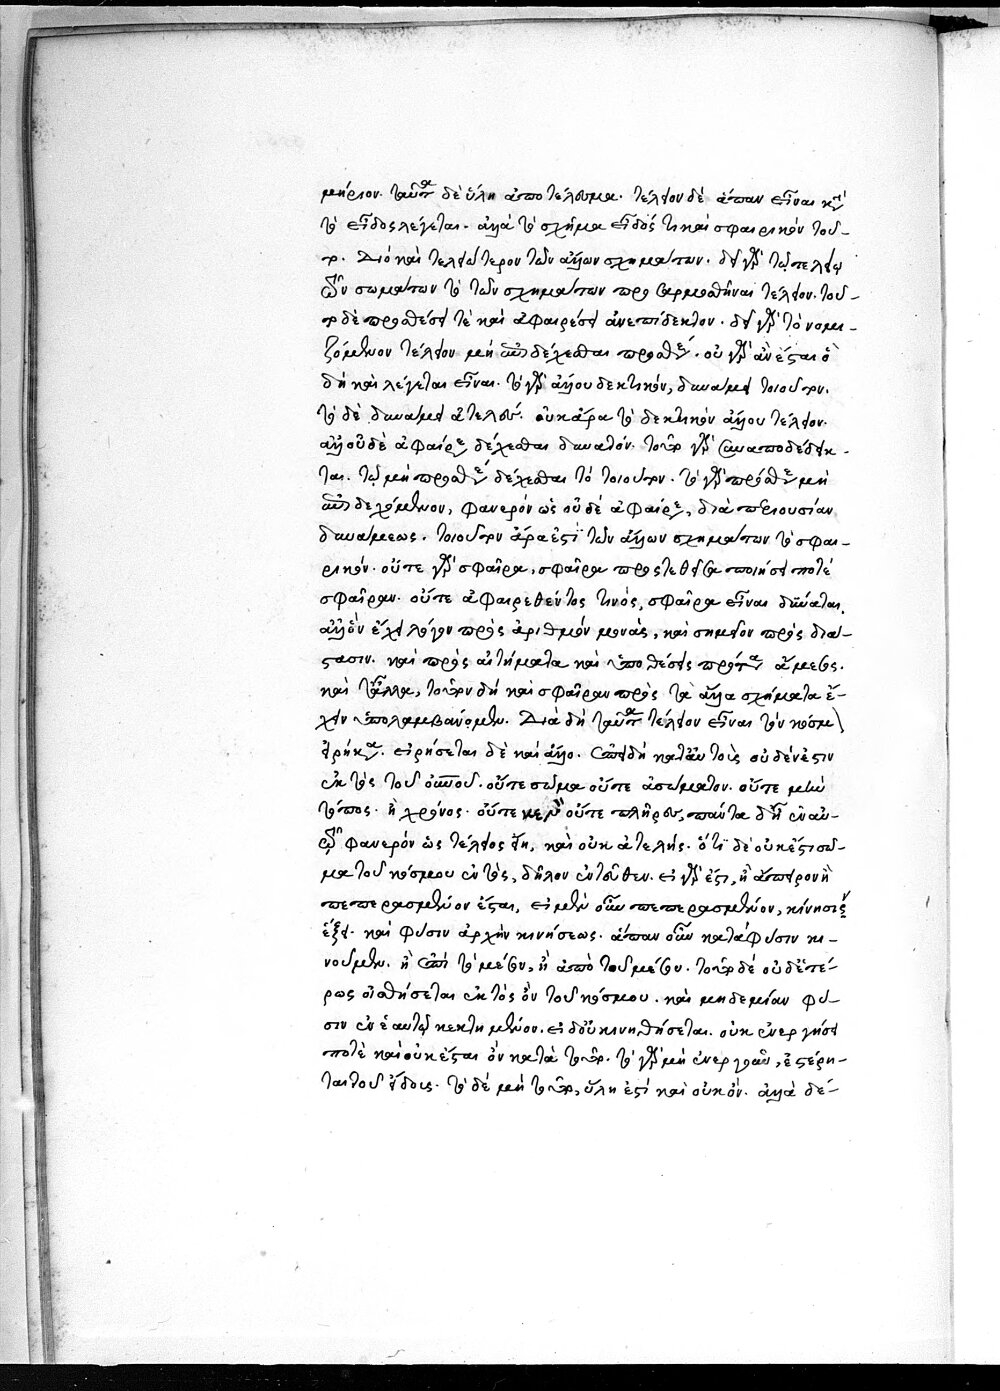 μήριον. ταῦτα δὲ ὕλη ἀποτέλεσμα. τέλειον δὲ ἅπαν εἶναι κατὰ
τὸ εἶδος λέγεται. ἀλλὰ τὸ σχῆμα εἶδός τι καὶ σφαιρικὸν τοῦ-
το. Διὸ καὶ τελεώτερον τῶν ἄλλων σχημάτων. δεῖ γὰρ τῷ τελείῳ
τῶν σωμάτων τὸ τῶν σχημάτων προσαρμοσθῆναι τέλειον. τοῦ-
το δὲ προσθέσει τὲ καὶ ἀφαιρέσει ἀνεπίδεκτον. δεῖ γὰρ τὸ νομι-
ζόμενον τέλειον μὴ ἐπιδέχεσθαι πρόσθεσιν. οὐ γὰρ ἂν ἔσται ὃ
δὴ καὶ λέγεται εἶναι. τὸ γὰρ ἄλλου δεκτικόν, δυνάμει τοιοῦτον.
τὸ δὲ δυνάμει ἀτελές. οὐκ ἄρα τὸ δεκτικὸν ἄλλου τέλειον.
ἀλλ' οὐδὲ ἀφαίρεσιν δέχεσθαι δυνατόν. τοῦτο γὰρ συναποδέδεικ-
ται. τῷ μὴ πρόσθεσιν δέχεσθαι τὸ τοιοῦτον. τὸ γὰρ πρόσθεσιν μὴ
ἐπιδεχόμενον, φανερὸν ὡς οὐδὲ ἀφαίρεσιν, διὰ περιουσίαν
δυνάμεως. τοιοῦτον ἄρα ἐστὶ τῶν ἄλλων σχημάτων τὸ σφαι-
ρικόν. οὔτε γὰρ σφαῖρα, σφαῖρα προστεθεῖσα ποιήσει ποτὲ
σφαῖραν. οὔτε ἀφαιρεθέντος τινὸς, σφαῖρα εἶναι δύναται.
ἀλλ' ὃν ἔχει λόγον πρὸς ἀριθμὸν μονὰς, καὶ σημεῖον πρὸς διά-
στασιν. καὶ πρὸς αἰτήματα καὶ ὑποθέσεις πρότασις ἄμεσος.
καὶ τἄλλα, τοῦτον δὴ καὶ σφαῖραν πρὸς τὰ ἄλλα σχήματα ἔ-
χειν ὑπολαμβάνομεν. Διὰ δὴ ταῦτα τέλειον εἶναι τὸν κόσμον
εἰρήκαμεν. εἰρήσεται δὲ καὶ ἄλλο. ἐπειδὴ κατ' αὐτοὺς οὐδέν ἐστιν
ἐκτὸς τοῦ οὐρανοῦ. οὔτε σῶμα οὔτε ἀσώματον. οὔτε μὴν
τόπος. ἢ χρόνος. οὔτε κενὸν οὔτε πλῆρες, πάντα δὴ ἐν αὐ-
τῷ φανερὸν ὡς τέλειος εἴη, καὶ οὐκ ἀτελής. ὅτι δὲ οὐκ ἔστι σῶ-
μα τοῦ κόσμου ἐκτὸς, δῆλον ἐντεῦθεν. εἰ γὰρ ἔστι, ἢ ἄπειρον ἢ
πεπερασμένον ἔσται, εἰ μὲν οὖν πεπερασμένον, κίνησιν
ἕξει. καὶ φύσιν ἀρχὴν κινήσεως. ἅπαν οὖν κατὰ φύσιν κι-
νούμενον. ἢ ἐπὶ τὸ μέσον, ἢ ἀπὸ τοῦ μέσου. τοῦτο δὲ οὐδετέ-
ρως οἰσθήσεται ἐκτὸς ὂν τοῦ κόσμου. καὶ μηδεμίαν φύ-
σιν ἐν ἑαυτῷ κεκτημένον. εἰ δ' οὐ κινηθήσεται. οὐκ ἐνεργήσει
ποτὲ καὶ οὐκ ἔσται ὂν κατὰ τοῦτο. τὸ γὰρ μὴ ἐνεργοῦν, ἐστέρη-
ται τοῦ εἴδους. τὸ δὲ μὴ τοῦτο, ὕλη ἐστὶ καὶ οὐκ ὄν. ἀλλὰ δέ-